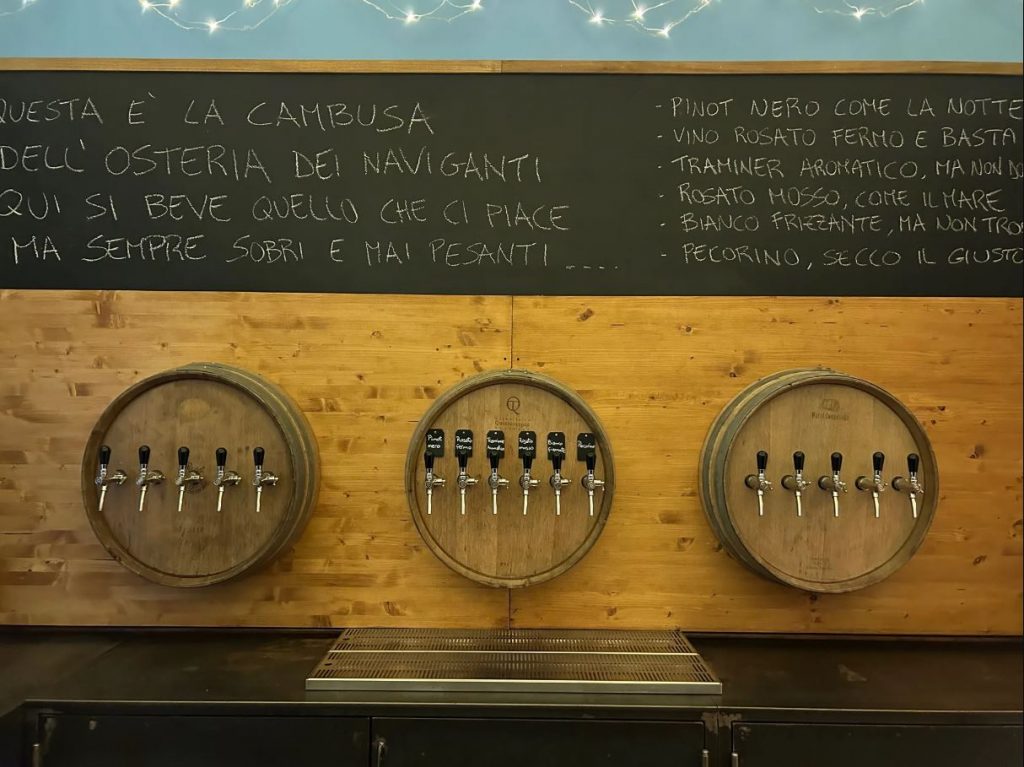 QUESTA E' LA CAMBUSA
DELL'OSTERIA DEI NAVIGANTI
QUI SI BEVE QUELLO CHE CI PIACE
MA SEMPRE SOBRI E MAI PESANTI ....
- PINOT NERO COME LA NOTTE
- VINO ROSATO FERMO E BASTA
- TRAMINER AROMATICO, MA NON DO
- ROSATO MOSSO, COME IL MARE
- BIANCO FRIZZANTE, MA NON TROP
- PECORINO, SECCO IL GIUSTO
Pinot nero
Rosato fermo
Rosato mosso
Bianco frizzante
Pecorino